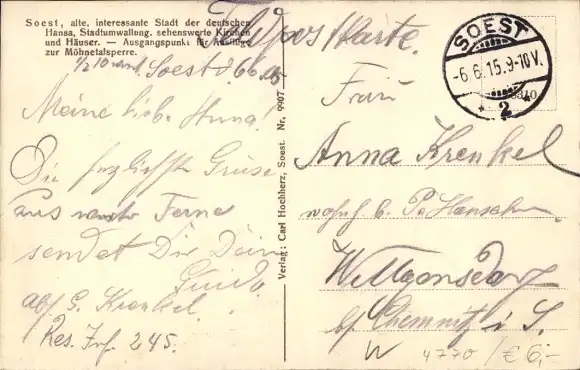 Soest, alte, interessante Stadt der deutschen
Hansa, Stadtumwallung, sehenswerte Kirchen
und Häuser. — Ausgangspunkt für Ausflüge
zur Möhnetalsperre.
Feldpost/Karte.
Soest d. 6.6.15
Meine liebe Anna!
Die herzlichsten Grüsse
aus Ferne
sendet Dir Dein
Guido
abs. G. Krenkel.
Res. Inf. 245.
Verlag: Carl Hochherz, Soest. Nr. 9907
SOEST
-6.6.15.9-10V.
* 2 *
Frau
Anna Krenkel
wohnh. b.
Wittgensdorf
b/ Chemnitz i. S.
W
4770 / € 6,-